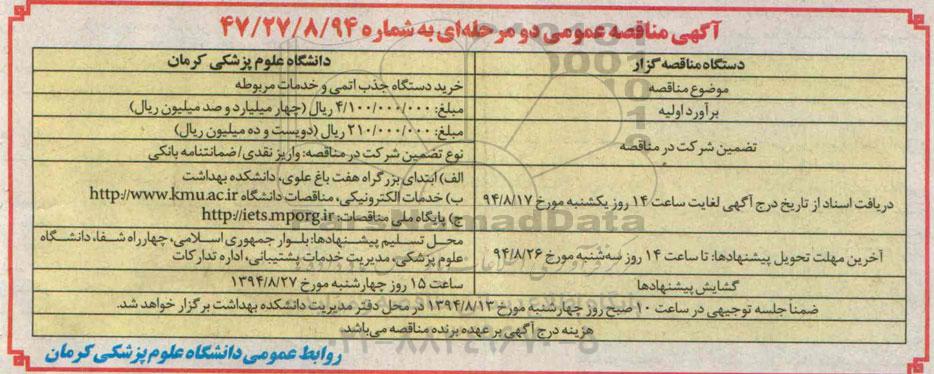 آگهی مناقصه عمومی دو مرحله‌ای به شماره ۴۷/۲۷/۸/۹۴
دستگاه مناقصه گزار
دانشگاه علوم پزشکی کرمان
موضوع مناقصه
خرید دستگاه جذب اتمی و خدمات مربوطه
برآورد اولیه
مبلغ: ۴/۱۰۰/۰۰۰/۰۰۰ ریال (چهار میلیارد و صد میلیون ریال)
تضمین شرکت در مناقصه
مبلغ: ۲۱۰/۰۰۰/۰۰۰ ریال (دویست و ده میلیون ریال)
نوع تضمین شرکت در مناقصه: واریز نقدی/ضمانتنامه بانکی
دریافت اسناد از تاریخ درج آگهی لغایت ساعت ۱۴ روز یکشنبه مورخ ۹۴/۸/۱۷
الف) ابتدای بزرگراه هفت باغ علوی، دانشکده بهداشت
ب) خدمات الکترونیکی، مناقصات دانشگاه http://www.kmu.ac.ir
ج) پایگاه ملی مناقصات: http://iets.mporg.ir
آخرین مهلت تحویل پیشنهادها: تا ساعت ۱۴ روز سه‌شنبه مورخ ۹۴/۸/۲۶
محل تسلیم پیشنهادها: بلوار جمهوری اسلامی، چهارراه شفا، دانشگاه
علوم پزشکی، مدیریت خدمات پشتیبانی، اداره تدارکات
گشایش پیشنهادها
ساعت ۱۵ روز چهارشنبه مورخ ۱۳۹۴/۸/۲۷
ضمناً جلسه توجیهی در ساعت ۱۰ صبح روز چهارشنبه مورخ ۱۳۹۴/۸/۱۳ در محل دفتر مدیریت دانشکده بهداشت برگزار خواهد شد.
هزینه درج آگهی بر عهده برنده مناقصه می‌باشد.
روابط عمومی دانشگاه علوم پزشکی کرمان